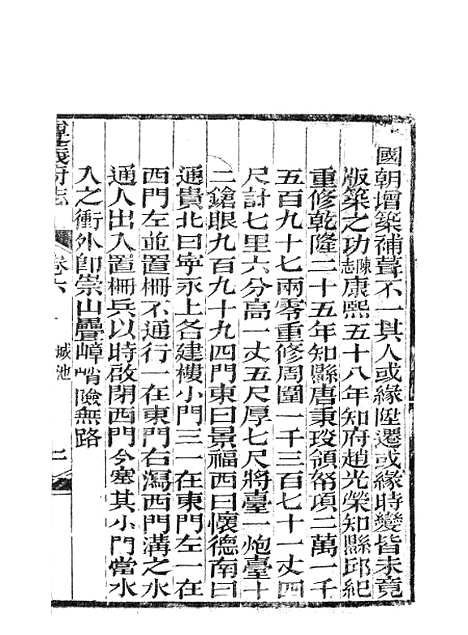 國朝增築補葺不一其人或緣陞遷或緣時變皆未竟
版築之功陳志康熙五十八年知府趙光榮知縣邱紀
重修乾隆二十五年知縣唐秉琰領帑項二萬一千
五百九十七兩零重修周圍一千三百七十一丈四
尺計七里六分高一丈五尺厚七尺將臺一炮臺十
二鎗眼九百九十九四門東曰景福西曰懷德南曰
通貴北曰寧永上各建樓小門三一在東門左一在
西門左並置柵不通行一在東門右瀉西門溝之水
通人出入置柵兵以時啟閉西門今塞其小門當水
入之衝外卽崇山疊嶂峭險無路
遵義府志 卷六 城池 二